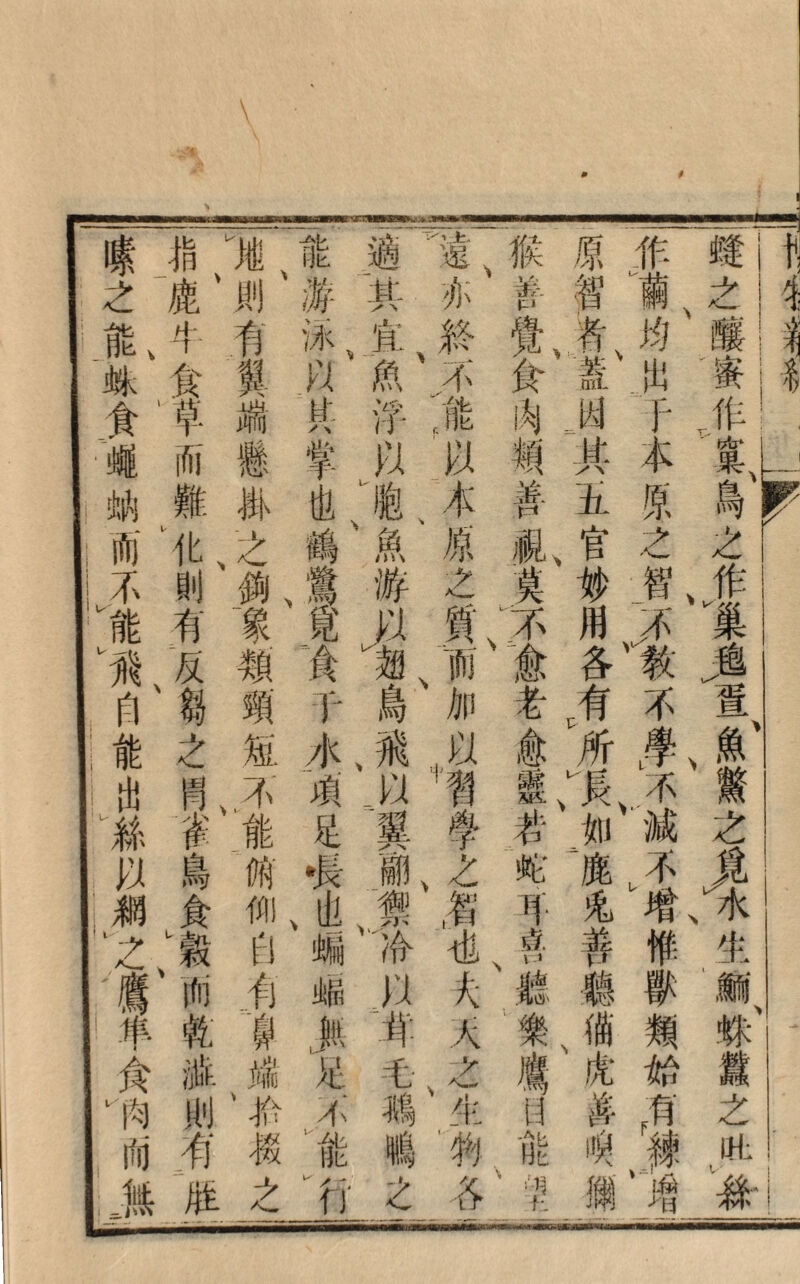 博物新編
蜂之釀蜜作窠鳥之作巢毺疍魚鱉之覓水生鮞蛛蠶之吐絲
作繭均出于本原之智不教不學不減不增惟獸類始有練增
原智者蓋因其五官妙用各有所長如鹿兎善聽猫虎善嗅獼
猴善覺食肉類善視莫不愈老愈靈若蛇耳喜聽樂鷹目能望
遠亦終不能以本原之質而加以習學之智也夫天之生物各
適其宜魚浮以胞魚游以翅鳥飛以翼翮禦冷以茸毛鵝鴨之
能游泳以其掌也鶴鷺覓食于水項足長也蝙蝠無足不能行
地則有翼端懸掛之鉤象類頸短不能俯仰自有鼻端拾掇之
指鹿牛食草而難化則有反芻之胃雀鳥食穀而乾澁則有脏
嗉之能蛛食蠅蚋而不能飛自能出絲以網之鷹隼食肉而無